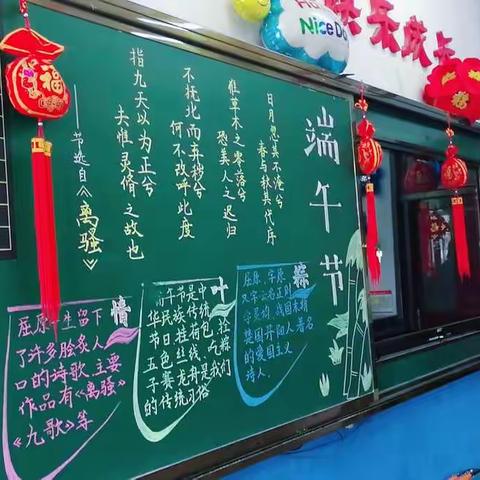 快乐成
Nice Da
福
端午节
日月忽其不淹兮
春与秋其代序
惟草木之零落兮
恐美人之迟归
不抚北而弃秽兮
何不改呼此度
指九天以为正兮
夫惟灵脩之故也
——节选自《离骚》
粽
屈原、字原
又字云名正则
字灵均、战国末期
楚国丹阳人、著名
的爱国主义
诗人.
叶
端午节是中
华民族传统
节日、挂荷包、拴
五色丝线、吃粽
子赛龙舟是我们
的传统习俗
情
屈原一生留下
了许多脍炙人
口的诗歌.主要
作品有《离骚》
《九歌》等